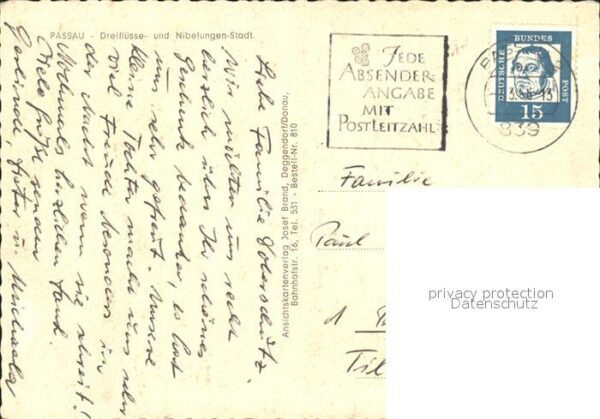 PASSAU - Dreiflüsse- und Nibelungen-Stadt
Liebe Familie
Wir möchten uns recht
herzlich über Ihr schönes
Geschenk bedanken, es hat
uns sehr gefreut. Unsere
kleine Tochter macht uns sehr
viel Freude besonders in
der Nacht wenn sie schreit!
Nochmals herzlichen Dank.
Viele Grüße senden
Gerlinde, u. Michaela
Ansichtskartenverlag Josef Brand, Deggendorf/Donau,
Bahnhofstr. 16, Tel. 531 - Bestell-Nr. 810
JEDE
ABSENDER-
ANGABE
MIT
POSTLEITZAHL
DEUTSCHE BUNDES POST
15
839
Familie
Paul
1
privacy protection
Datenschutz